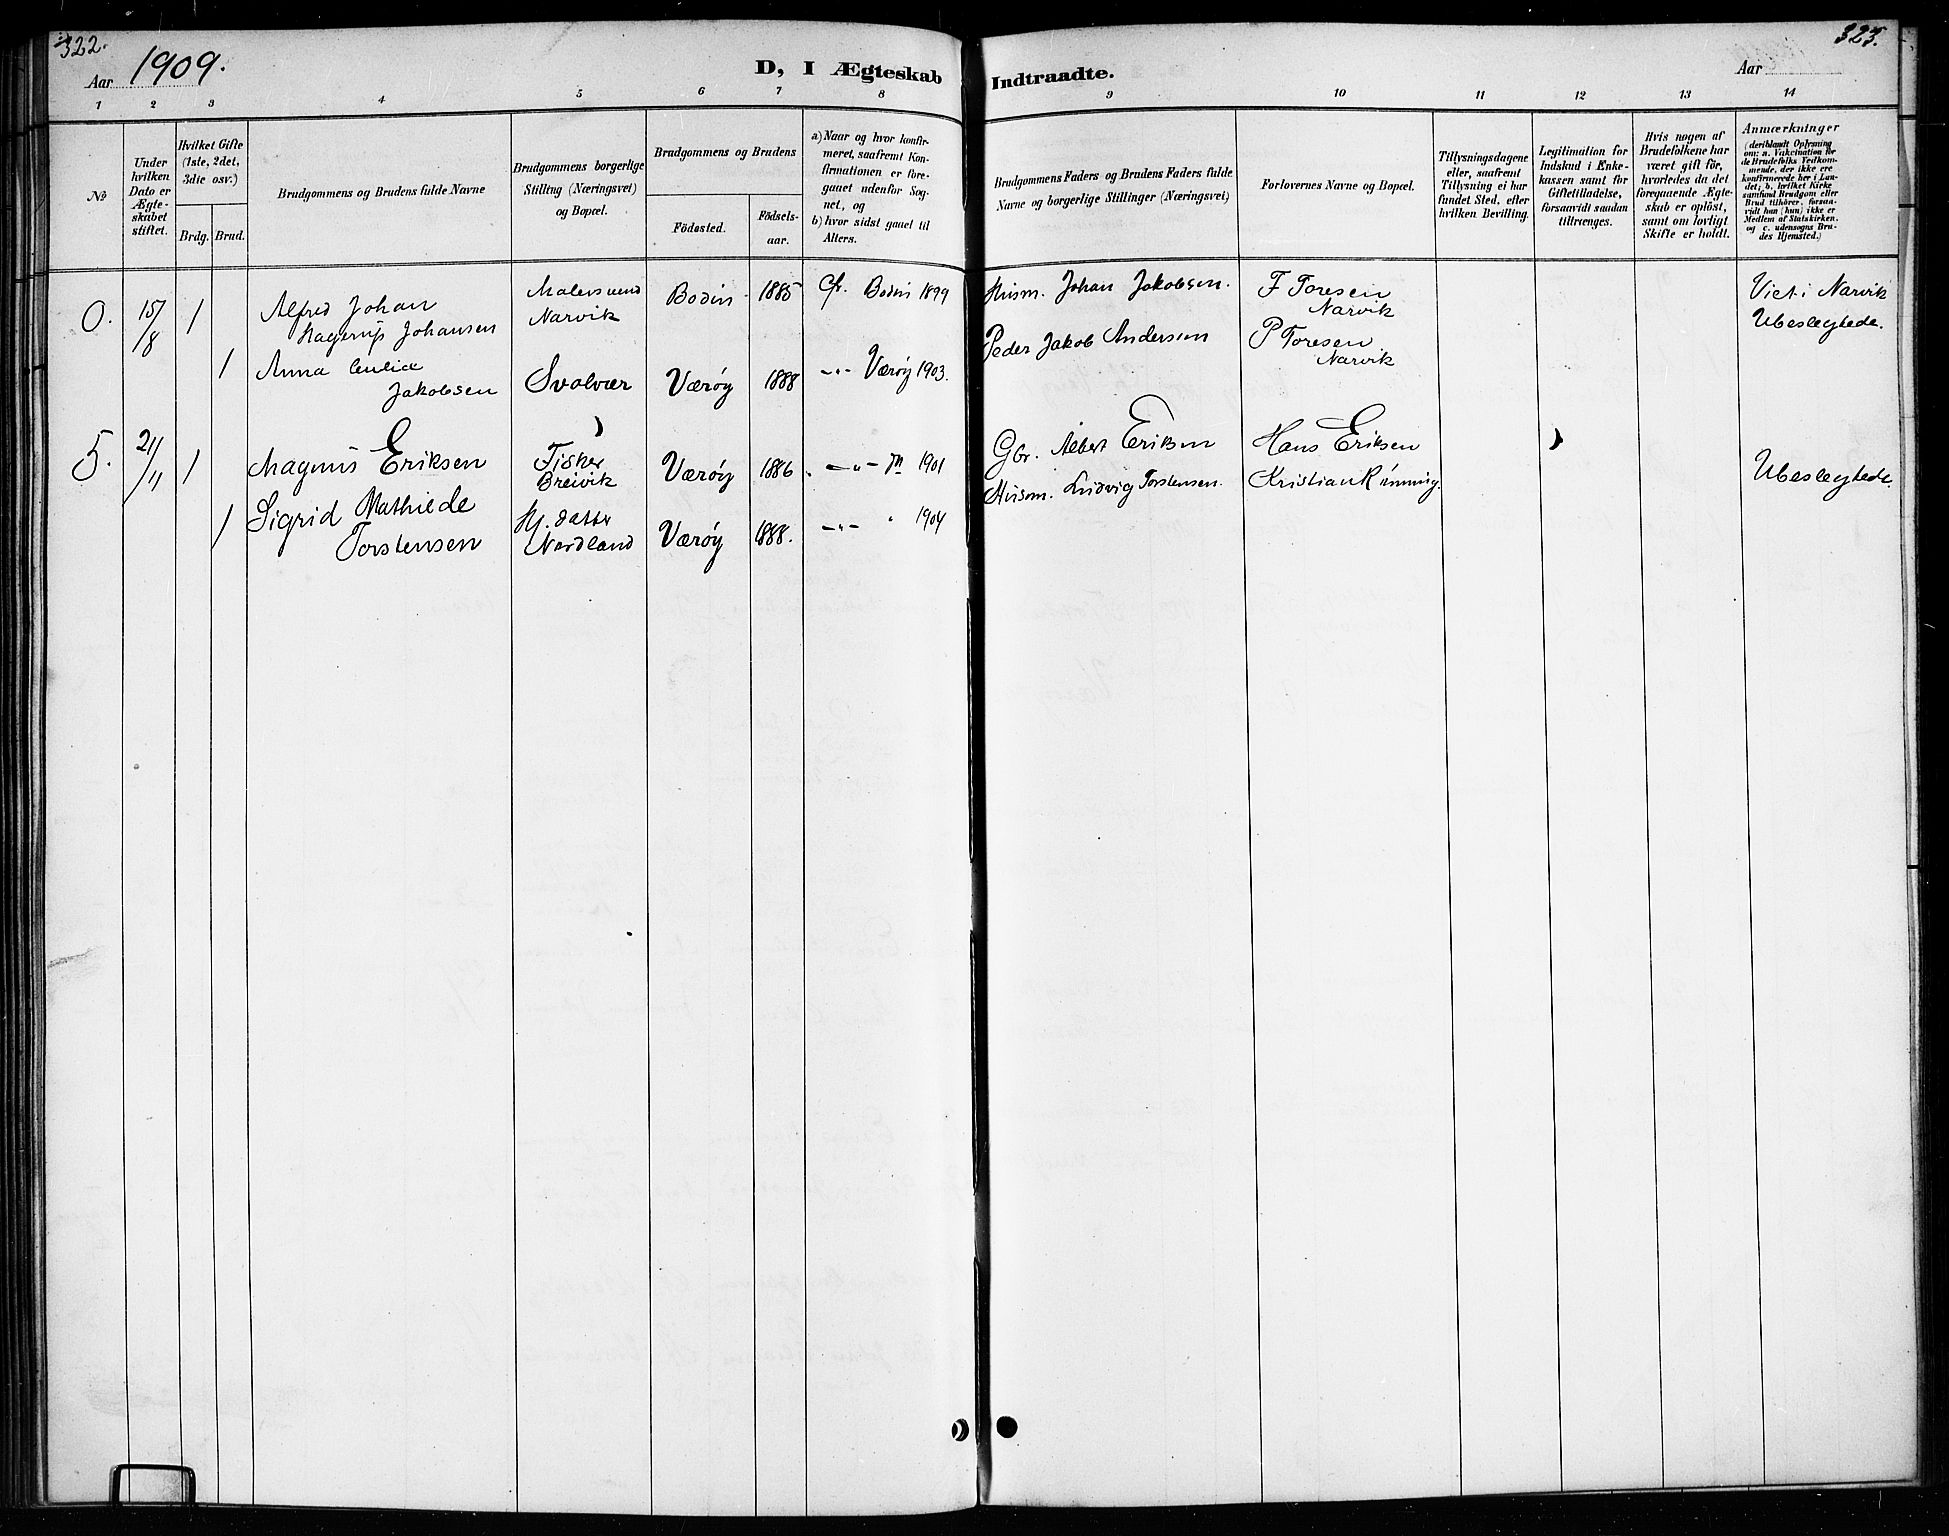 322.
323.
Aar 1909.
D, I Ægteskab Indtraadte.
Aar
1 2 3 4 5 6 7 8 9 10 11 12 13 14
No
Under hvilken Dato er Ægte-skabet stiftet.
Hvilket Gifte (1ste, 2det, 3die osv.)
Brdg. Brud.
Brudgommens og Brudens fulde Navne
Brudgommens borgerlige Stilling (Næringsvei) og Bopæl.
Brudgommens og Brudens
Födested.
Födsels-aar.
a) Naar og hvor konfir-meret, saafremt Kon-firmationen er fore-gaaet udenfor Sog-net, og
b) hvor sidst gaaet til Alters.
Brudgommens Faders og Brudens Faders fulde Navne og borgerlige Stillinger (Næringsvei)
Forlovernes Navne og Bopæl.
Tillysningsdagene eller, saafremt Tillysning ei har fundet Sted, efter hvilken Bevilling.
Legitimation for Indskud i Enke-kassen samt for Giftetilladelse, forsaavidt saadan tiltrænges.
Hvis nogen af Brudefolkene har været gift för, hvorledes da det foregaaende Ægte-skab er oplöst, samt om lovligt Skifte er holdt.
Anmærkninger (deriblandt Oplysning om: a. Vakcination for de Brudefolks Vedkom-mende, der ikke ere konfirmerede her i Lan-det; b. hvilket Kirke samfund Brudgom eller Brud tilhörer, forsaa-vidt han (hun) ikke er Medlem af Statskirken. og c. udensogns Bru-des Hjemsted.)
0. 15/8 1 Alfred Johan Malersvend Bodin 1885 Cfr. Bodin 1899 Husm. Johan Jakobsen. F Toresen Viet i Narvik
Hagerup Johansen Narvik Narvik Ubeslegtede.
Peder Jakob Andersen P Toresen
1 Anna Jakobsen Svolvær Værøy 1888 -"- Værøy 1903. Narvik
5. 21/11 1 Magnus Eriksen Fisker Værøy 1886 -"- 1901 Gbr. Albert Eriksen Hans Eriksen Ubeslegtede.
Breivik Husm. Ludvig Torstensen. Kristian Rönning.
1 Sigrid Mathilde datter Værøy 1888. -"- " 1904
Torstensen Nordland